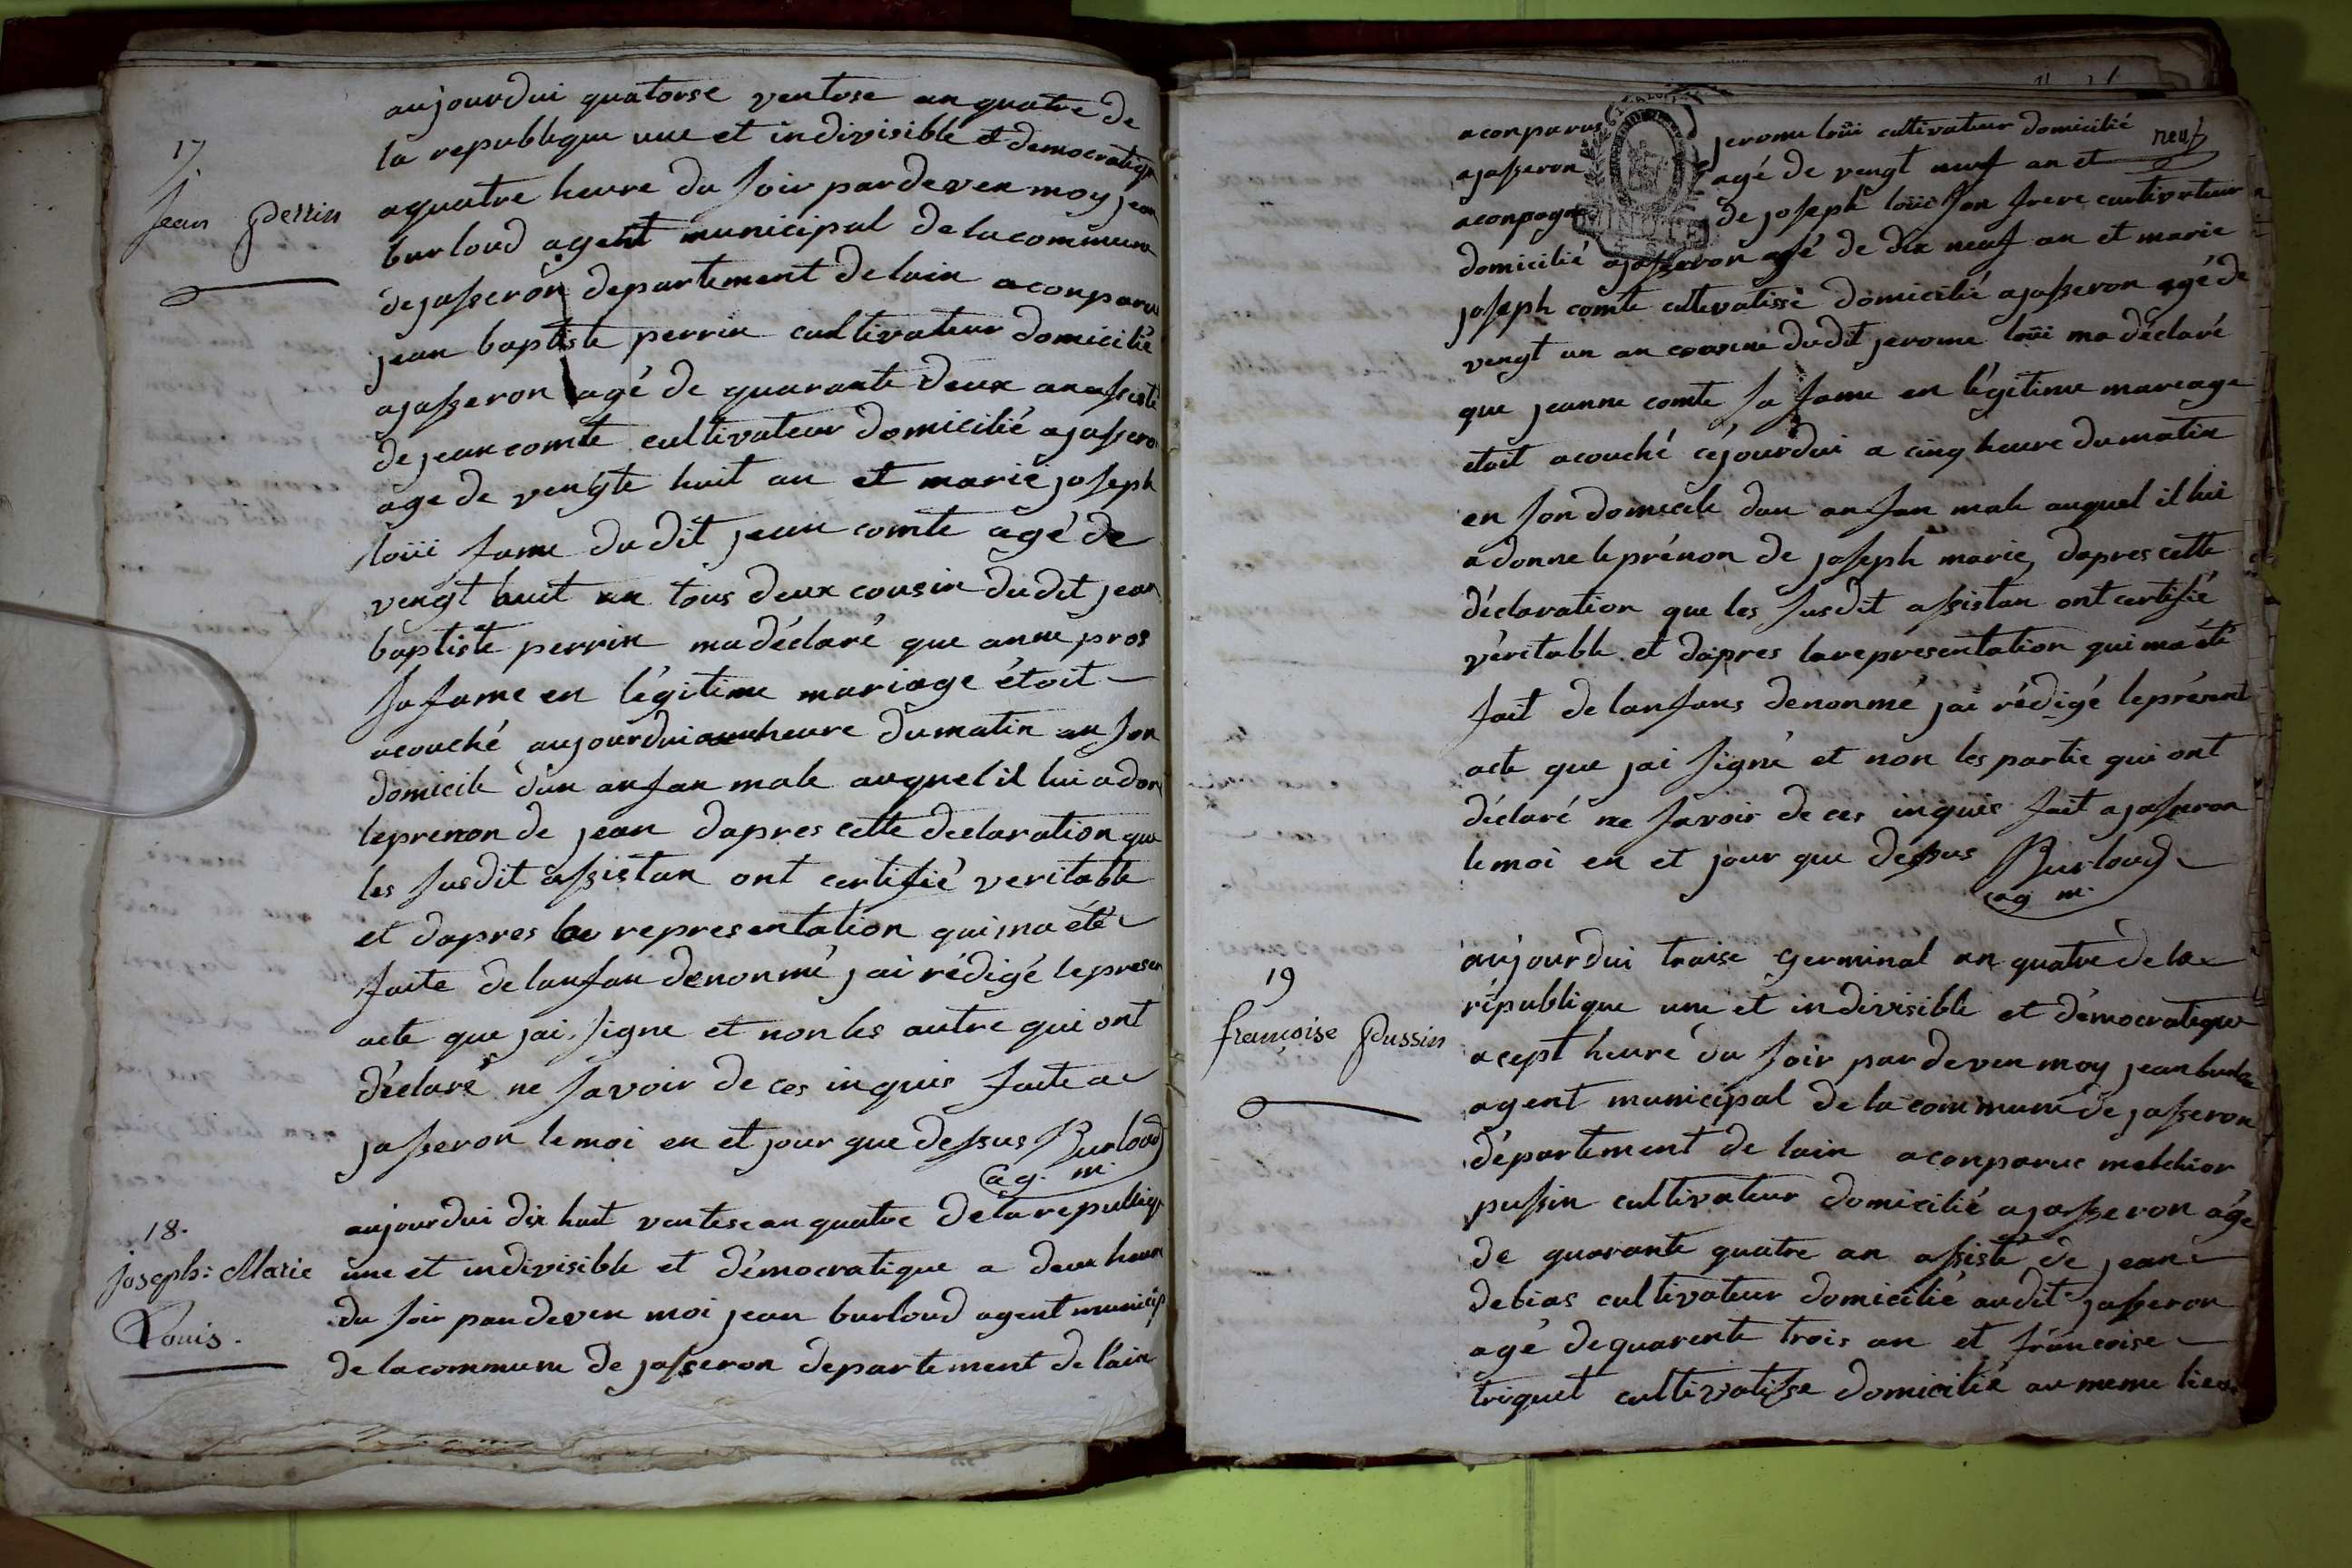 17
jean perrin
aujourdui quatorse ventose an quatre de
la republique une et indivisible et democratiq
a quatre heure du soir par deven moy jean
burloud agent municipal de la commune
de jasseron departement de lain a conparu
jean baptiste perrin cultivateur domicilié
a jasseron agé de quarante deux an assisté
de jean comte cultivateur domicilié a jassero
age de vengte huit an et marie joseph
loüi fame du dit jean comte agé de
vengt huit an tous deux cousin du dit jean
baptiste perrin ma déclaré que anne pros
sa fame en légitime mariage étoit
acouché aujourdui heure du matin an son
domicile dun anfan male auquel il lui a don
le prenon de jean dapres cette declaration que
les susdit assistan ont certifié veritable
et dapres la representation qui ma été
faite de lanfan denonmé jai rédigé le presen
acte que jai signe et non les autre qui ont
déclaré ne savoir de ces inquis faite a
jasseron le moi en et jour que dessus Burloud
ag. m.
18.
joseph: Marie
Louis.
aujourdui dix huit ventose an quatre de la republiq
une et indivisible et démocratique a deux heure
du soir par deven moi jean burloud agent municip
de la commune de jasseron departement de l'ain
neuf
a conparus jerome loüi cultivateur domicilié
a jasseron agé de vengt neuf an et
aconpagné de joseph loüi son frere cultivateur
domicilié a jasseron agé de dix neuf an et marie
joseph comte cultivatisse domicilié a jasseron agé de
vengt un an cousine du dit jerome loüi ma déclaré
que jeanne comte sa fame en légitime mareage
etoit acouché céjourdui a cinq heure du matin
en son domicile dun anfan male auquel il lui
a donne le prénon de joseph marie, dapres cette
déclaration que les susdit assistan ont certifié
véritable et dapres la representation qui ma été
fait de lanfans denonmé jai rédigé le présent
acte que jai signé et non les partie qui ont
déclaré ne savoir de ces inquis fait a jasseron
le moi en et jour que dessus Burloud
ag m.
19
françoise pussin
aujourdui traise germinal an quatre de la
république une et indivisible et démocratique
a cept heure du soir par deven moy jean burlou
agent municipal de la commune de jasseron
département de lain a conparue melchior
pussin cultivateur domicilié a jasseron agé
de quarante quatre an assisté de jean
debias cultivateur domicilié audit jasseron
agé de quarente trois an et francoise
triquet cultivatisse domicilié au meme lieu